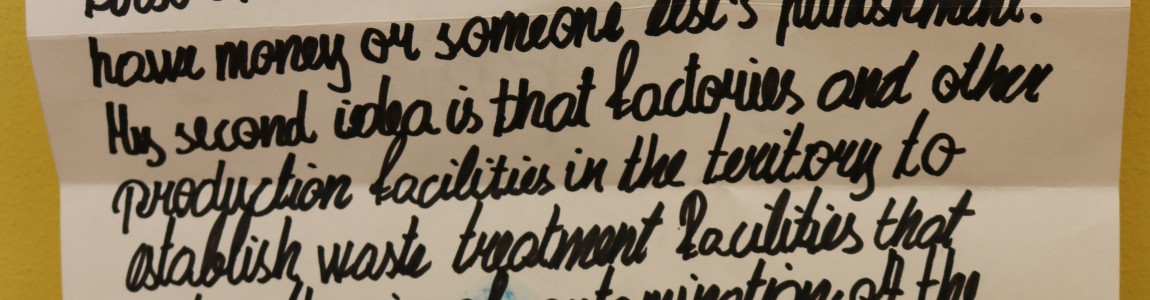 have money or someone else's punishment.
My second idea is that factories and other
production facilities in the teritory to
establish waste treatment facilities that
of the